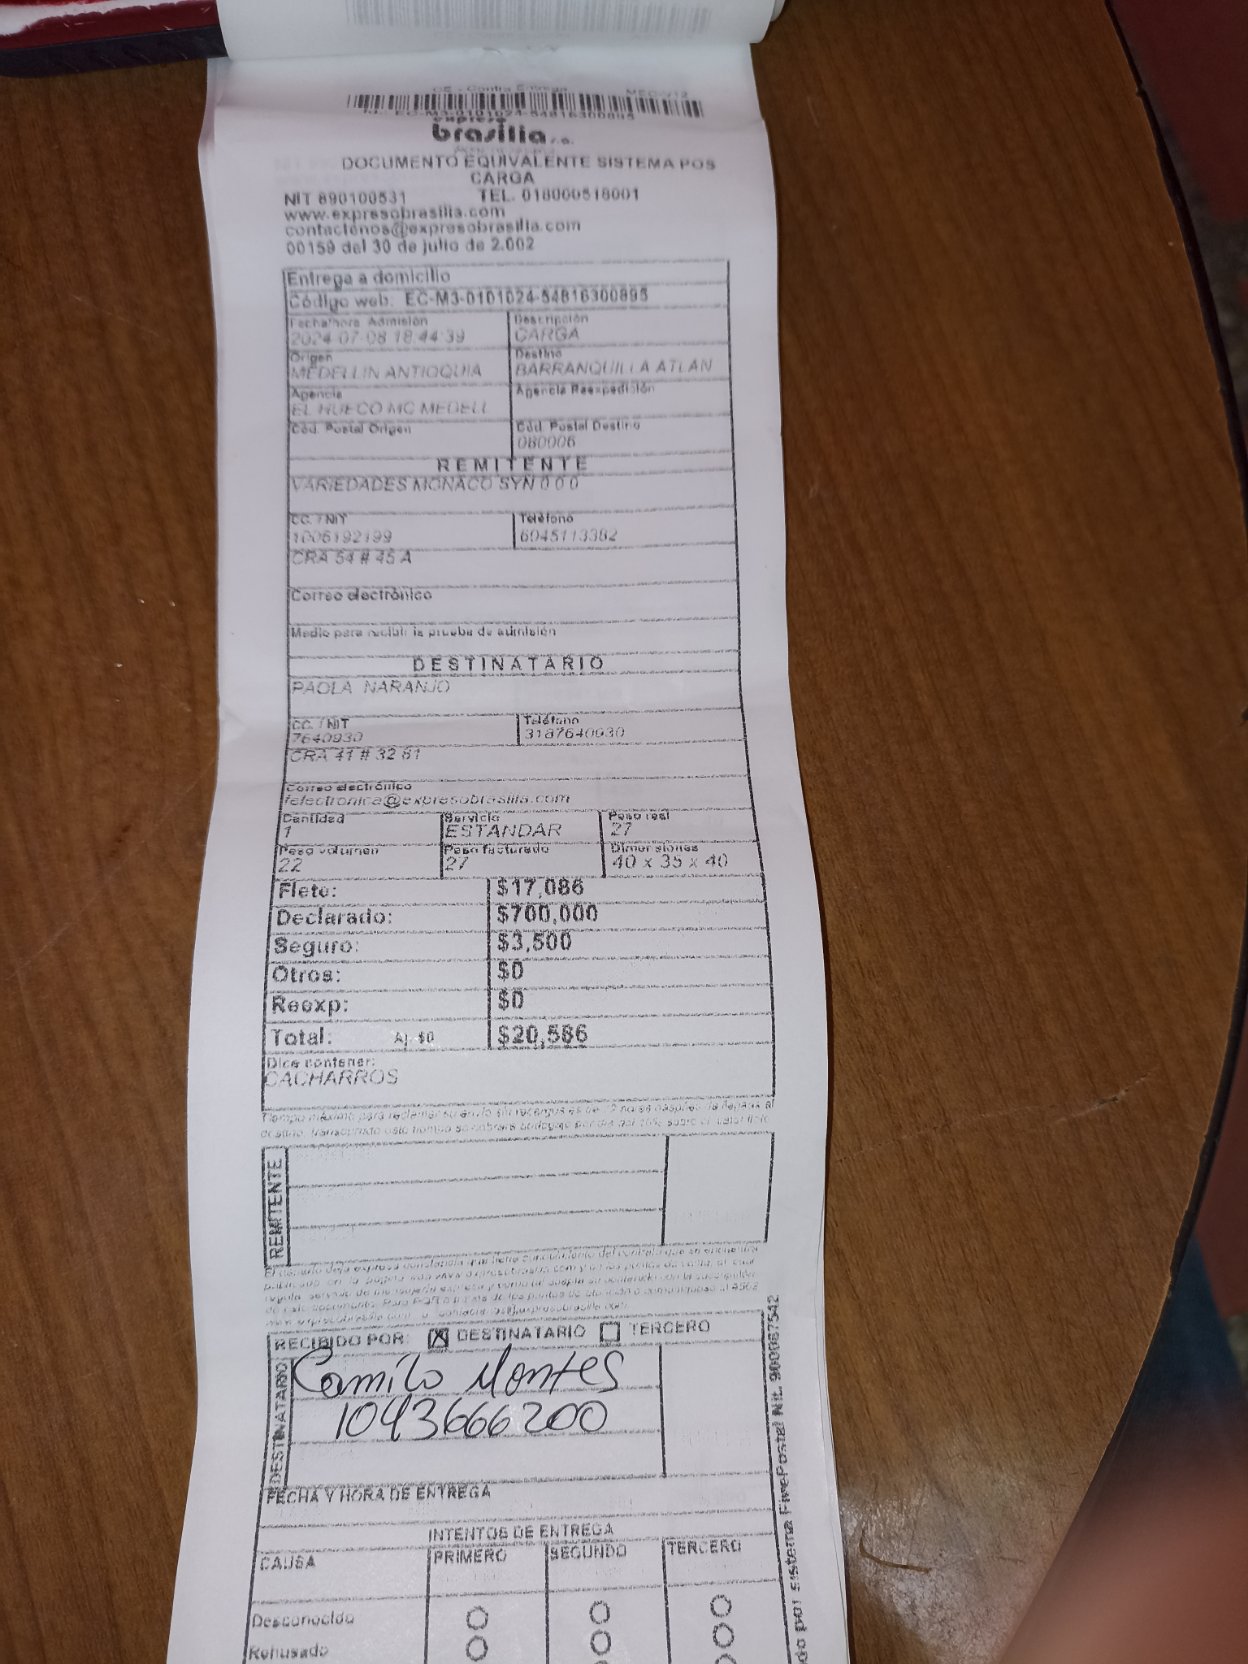 CE - Contra Entrega
Id.: EC-M3-0101024-54816300895
expreso
brasilia s.a.
DOCUMENTO EQUIVALENTE SISTEMA POS
CARGA
NIT 890100531 TEL. 018000518001
www.expresobrasilia.com
contactenos@expresobrasilia.com
00159 del 30 de julio de 2.002
Entrega a domicilio
Código web: EC-M3-0101024-54816300895
Fecha/hora Admisión Descripción
2024-07-08 18:44:39 CARGA
Origen Destino
MEDELLIN ANTIOQUIA BARRANQUILLA ATLAN
Agencia Agencia Reexpedición
EL HUECO MC MEDELL
Cód. Postal Origen Cód. Postal Destino
080006
REMITENTE
VARIEDADES MONACO SYN 0 0 0
CC. / NIT Teléfono
1006192199 6045113382
CRA 54 # 45 A
Correo electrónico
Medio para recibir la prueba de admisión
DESTINATARIO
PAOLA NARANJO
CC. / NIT Teléfono
7640930 3187640930
CRA 41 # 32 81
Correo electrónico
felectronica@expresobrasilia.com
Cantidad Servicio Peso real
1 ESTANDAR 27
Peso volumen Peso facturado Dimensiones
22 27 40 x 35 x 40
Flete: $17,086
Declarado: $700,000
Seguro: $3,500
Otros: $0
Reexp: $0
Total: Aj. $0 $20,586
Dice contener:
CACHARROS
REMITENTE
RECIBIDO POR: X DESTINATARIO TERCERO
DESTINATARIO
Camilo Montes
1043666200
FECHA Y HORA DE ENTREGA
INTENTOS DE ENTREGA
CAUSA PRIMERO SEGUNDO TERCERO
Desconocido
Rehusado
por sistema FivePostal Nit. 900087542